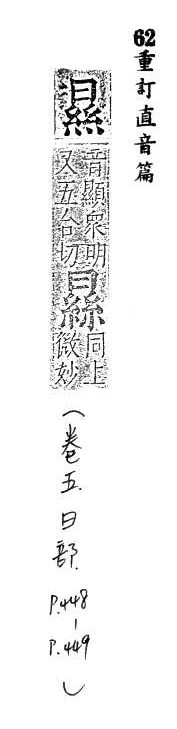 62重訂直音篇
㬎
音顯衆明
又五合切
同上
微妙
（卷五.日部.P.448-P.449）